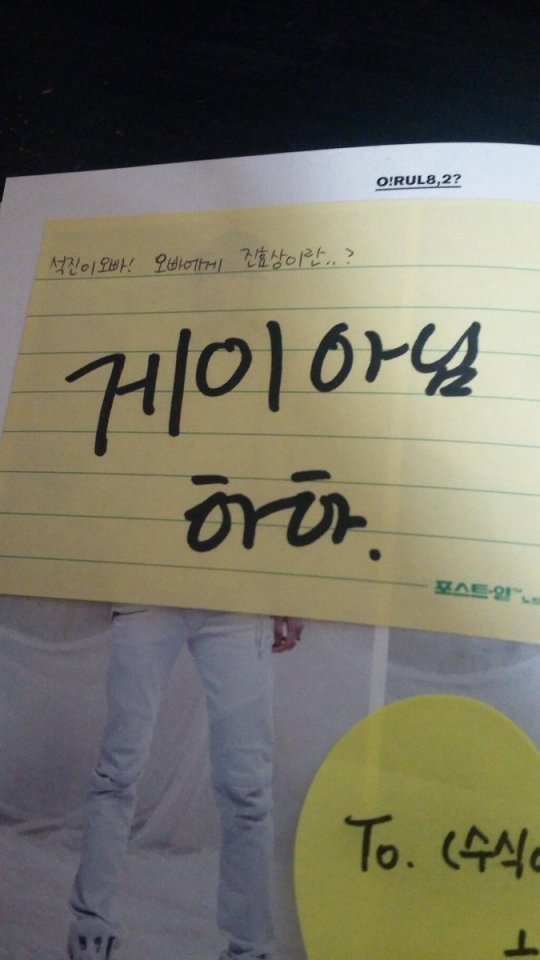 O!RUL8,2?
석진이오빠! 오빠에게 진효상이란..?
게이 아님
하하.
포스트-잇™ 노트
To. (수식어